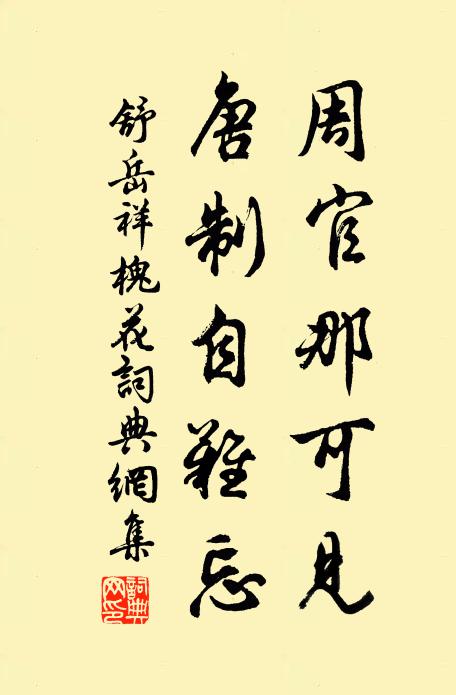 周官那可見
唐制自難忘
舒岳祥槐花詞典網集
詞典網印